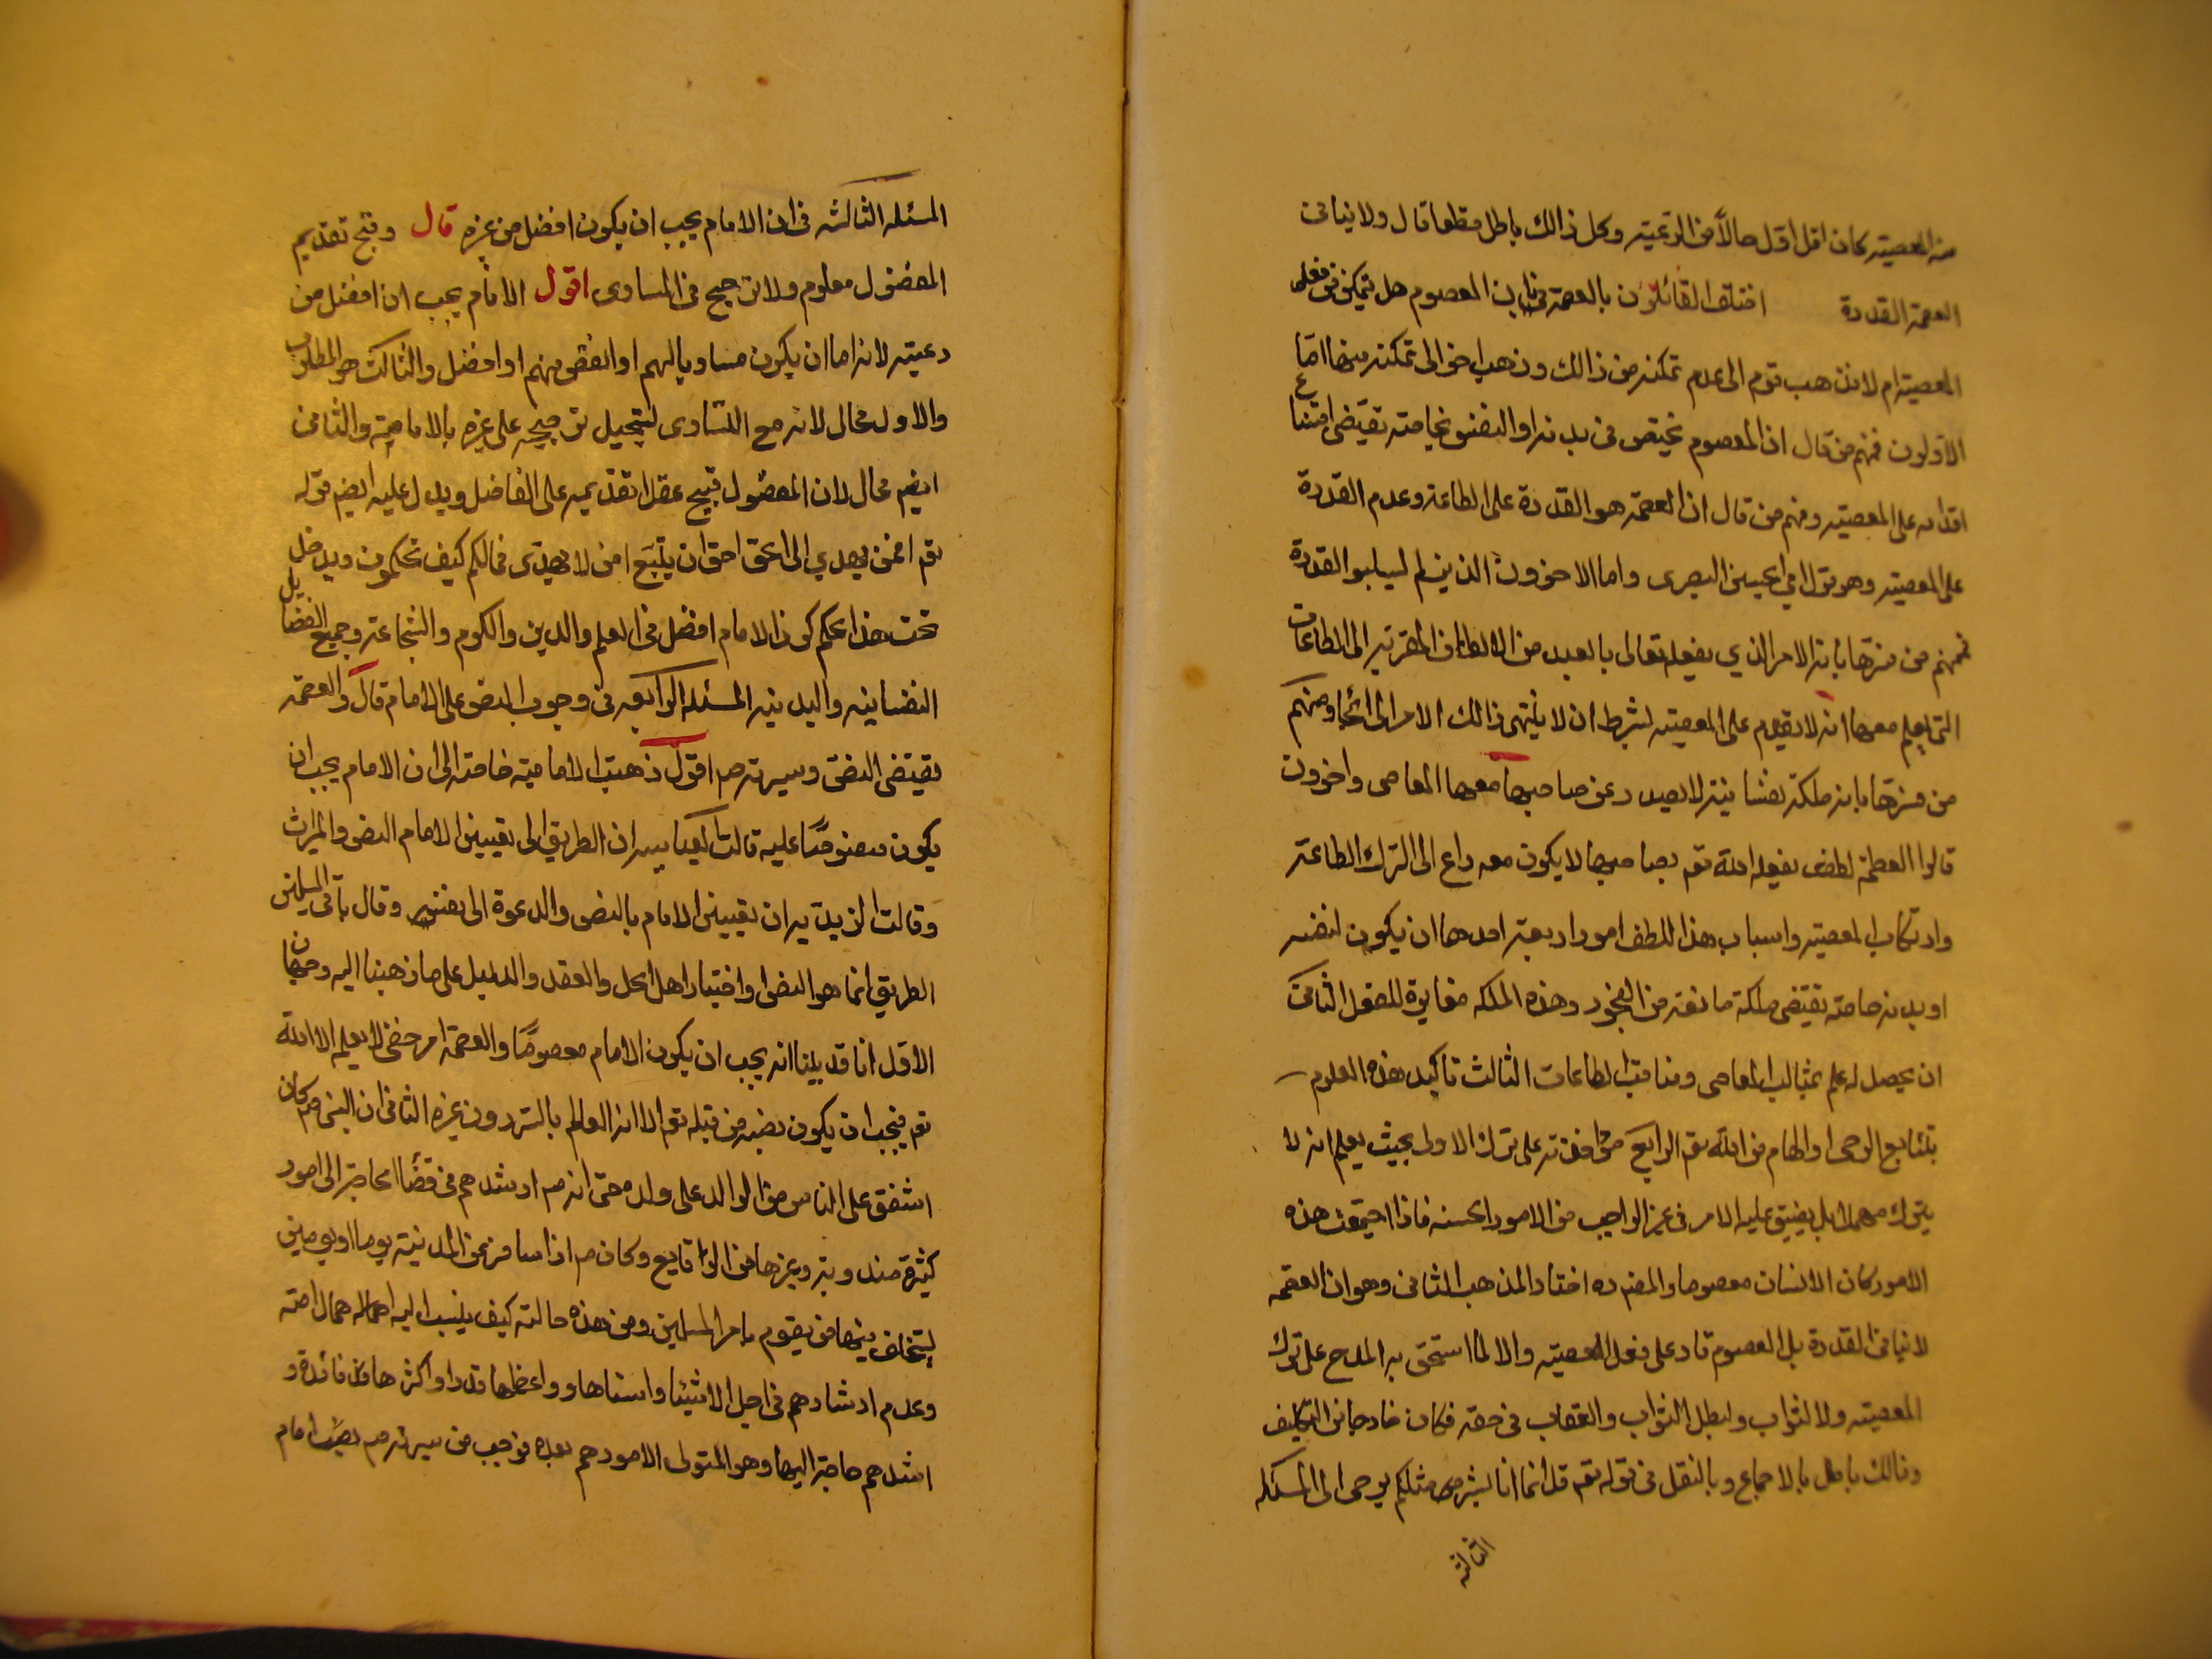 منه المعصيته كان اقل اقل حالاً من الرعيته وكل ذالك باطل قطعا قال ولا ينافى
العصمة القدرة اختلف القائلون بالعصمة فى ان المعصوم هل يتمكن من فعل
المعصيته ام لا فذهب قوم الى عدم تمكنه من ذالك وذهب اخرالى تمكنه منها امّا
الاوّلون فمنهم من قال ان المعصوم يختص فى بدنه او النفس بخاصته تقتضى امتناع
اقدامه على المعصيته ومنهم من قال ان العصمة هو القدرة على الطاعة وعدم القدرة
على المعصيته وهو قول ابى الحسين البصرى واما الاخرون الذين لم ليسلبوا القدرة
فمنهم من فسرها بانه الامر الذي يفعله تعالى بالعبد من الالطاف المقربة الى الطاعات
التى يعلم معها انه لا يقدم على المعصيته بشرط ان لا ينتهى ذالك الامر الى الالجاء ومنهم
من فسرها بانه ملكة نفسانية لا يصدر عن صاحبها معها المعاصى واخرون
قالوا العصمة لطف يفعله الله تعم بصاحبها لا يكون معه داع الى الترك الطاعة
وارتكاب المعصيته واسباب هذا اللطف امور اربعة احدها ان يكون لنفسه
او بدنه خاصته تقتضى ملكة مانعة من الفجور وهذه الملكه مغايرة للفعل الثانى
ان يحصل له علم بمثالب المعاصى ومناقب الطاعات الثالث تاكيد هذه العلوم
بتتابع الوحى او الهام من الله تعم الرابع مؤاخذته على ترك الاولى بحيث يعلم انه لا
يترك مهملا بل يضيق عليه الامر فى غير الواجب من الامور الحسنه فاذا اجتمعت هذه
الامور كان الانسان معصوما والمص ره اختار المذهب الثانى وهو ان العصمه
لا ينافى القدرة بل المعصوم قادر على فعل المعصيته والا لما استحق به المدح على ترك
المعصيته ولا الثواب ولبطل الثواب والعقاب فى حقه فكان خارجا من التكليف
وذالك باطل بالاجماع وبالنقل فى قوله تعم قل انما انا بشر مثلكم يوحى الى المسئله
الثالثه
المسئله الثالثه فى ان الامام يجب ان يكون افضل من غيره قال وقبح تقديم
المفضول معلوم ولا ترجيح فى المساوى اقول الامام يجب ان افضل من
رعيته لانه اما ان يكون مساويا لهم او انقص منهم او افضل والثالث هو المطلوب
والاول محال لانه مع التساوى يستحيل ترجيحه على غيره بالامامية والثانى
ايضم محال لان المفضول قبيح عقلا تقديمه على الفاضل ويدل عليه ايضم قوله
تعم افمن يهدي الى الحق احق ان يتبع امن لا يهدى فمالكم كيف تحكمون ويدخل
تحت هذا الحكم كون الامام افضل فى العلم والدين والكرم والشجاعة وجميع الفضايل
النفسانيه والبدنيه المسئله الرابعه فى وجوب النص على الامام قال والعصمة
تقتضى النص وسيرته صم اقول ذهبت الامامية خاصته الى ان الامام يجب ان
يكون منصوصًا عليه قالت العباسيه ان الطريق الى تعيين الامام النص والميراث
وقالت الزيديه ان تعيين الامام بالنص والدعوة الى نفسه وقال باقى المسلمين
الطريق انما هو النص او اختيار اهل الحل والعقد والدليل على ما ذهبنا اليه وجهان
الاول انا قد بينا انه يجب ان يكون الامام معصومًا والعصمة امر خفى لا يعلم الا الله
تعم فيجب ان يكون نصبه من قبله تعم لا انه العالم بالشر دون غيره الثانى ان النبى صم كان
اشفق على الناس من الوالد على ولده حتى انه صم ارشدهم فى قضا الحاجة الى امور
كثيرة مندوبة وغيرها من الوقايع وكان صم اذا سافر عن المدينة يوما او يومين
يستخلف فيها من يقوم بامر المسلمين ومن هذه حالته كيف ينسب اليه اهماله همال امته
وعدم ارشادهم فى اجل الاشيئا واسناها وواعظمها قدرا واكثرها فائدة و
اشدهم حاجة اليها وهو المتولى الامورهم بعده فوجب من سيرته صم نصب امام